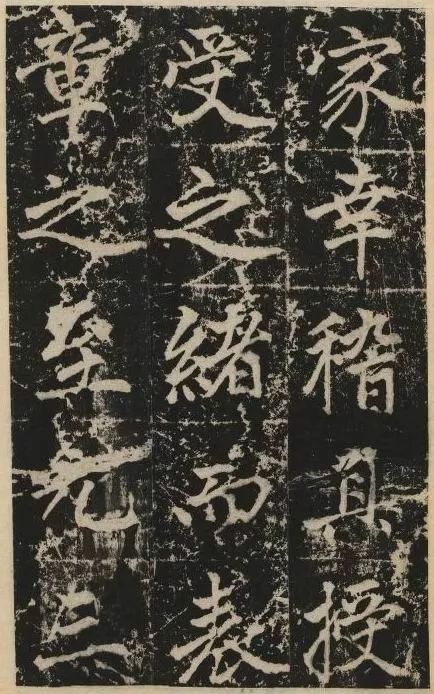 家幸稽其授
受之緒而表
章之至元三